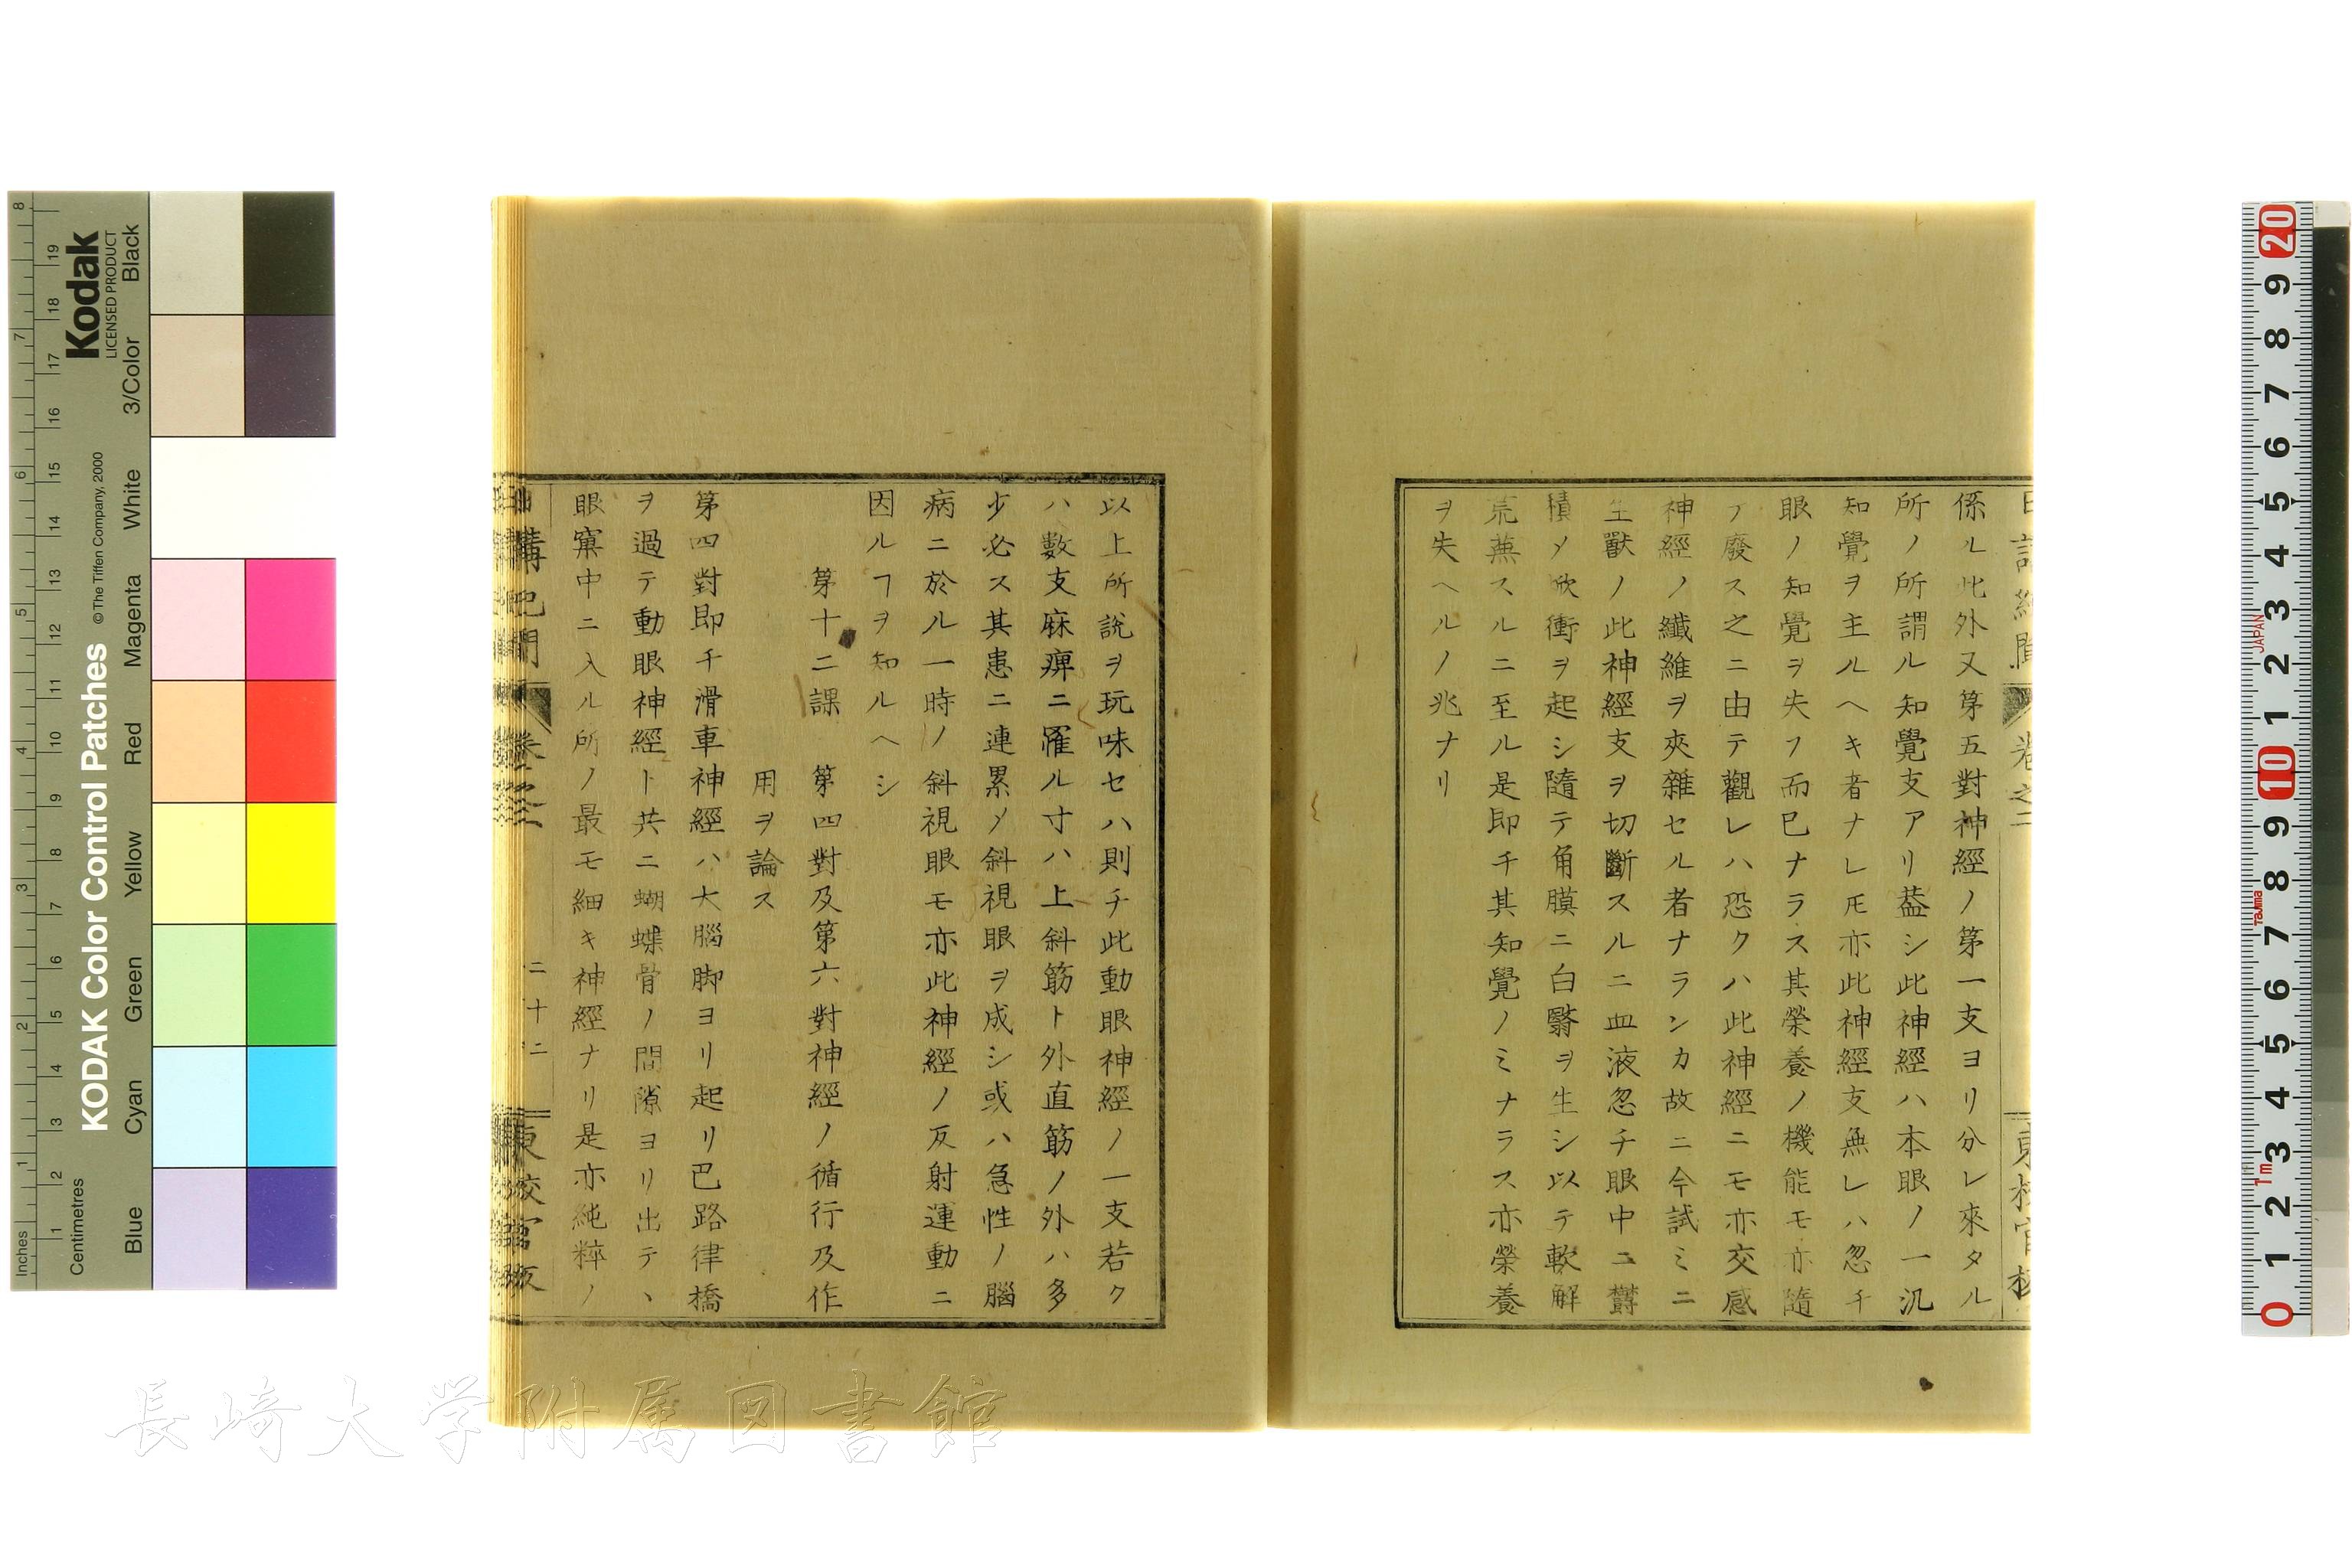 係ル此外又第五對神經ノ第一支ヨリ分レ來タル
所ノ所謂ル知覺支アリ葢シ此神經ハ本眼ノ一汎
知覺ヲ主ルヘキ者ナレ𪜈亦此神經支無レハ忽チ
眼ノ知覺ヲ失フ而已ナラス其榮養ノ機能モ亦隨
テ廢ス之ニ由テ觀レハ恐クハ此神經ニモ亦交感
神經ノ纎維ヲ夾雜セル者ナランカ故ニ今試ミニ
生獸ノ此神經支ヲ切斷スルニ血液忽チ眼中ニ欝
積〆焮衝ヲ起シ隨テ角膜ニ白翳ヲ生シ以テ軟解
荒蕪スルニ至ル是即チ其知覺ノミナラス亦榮養
ヲ失ヘルノ兆ナリ
以上所説ヲ玩味セハ則チ此動眼神經ノ一支若ク
ハ數支麻痺ニ罹ル寸ハ上斜筋ト外直筋ノ外ハ多
少必ス其患ニ連累〆斜視眼ヲ成シ或ハ急性ノ腦
病ニ於ル一時ノ斜視眼モ亦此神經ノ反射運動ニ
因ルヿヲ知ルヘシ
第十二課 第四對及第六對神經ノ循行及作
用ヲ論ス
第四對即チ滑車神經ハ大腦脚ヨリ起リ巴路律橋
ヲ過テ動眼神經ト共ニ蝴蝶骨ノ間隙ヨリ出テ、
眼窠中ニ入ル所ノ最モ細キ神經ナリ是亦純粹ノ
二十二
長崎大学附属図書館
KODAK Color Control Patches
© The Tiffen Company, 2000
Kodak
LICENSED PRODUCT
Inches
Centimetres
Blue Cyan Green Yellow Red Magenta White 3/Color Black
JAPAN
Tajima
1m